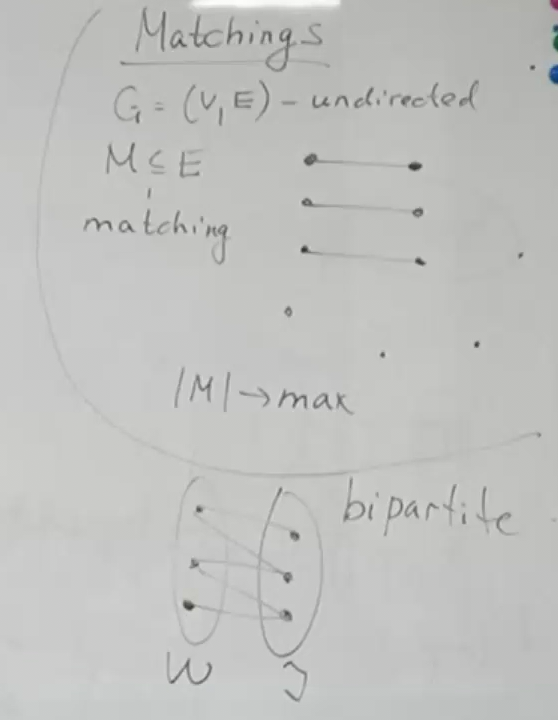 Matchings
G = (V, E) - undirected
M ⊆ E
matching
|M| → max
bipartite
W J